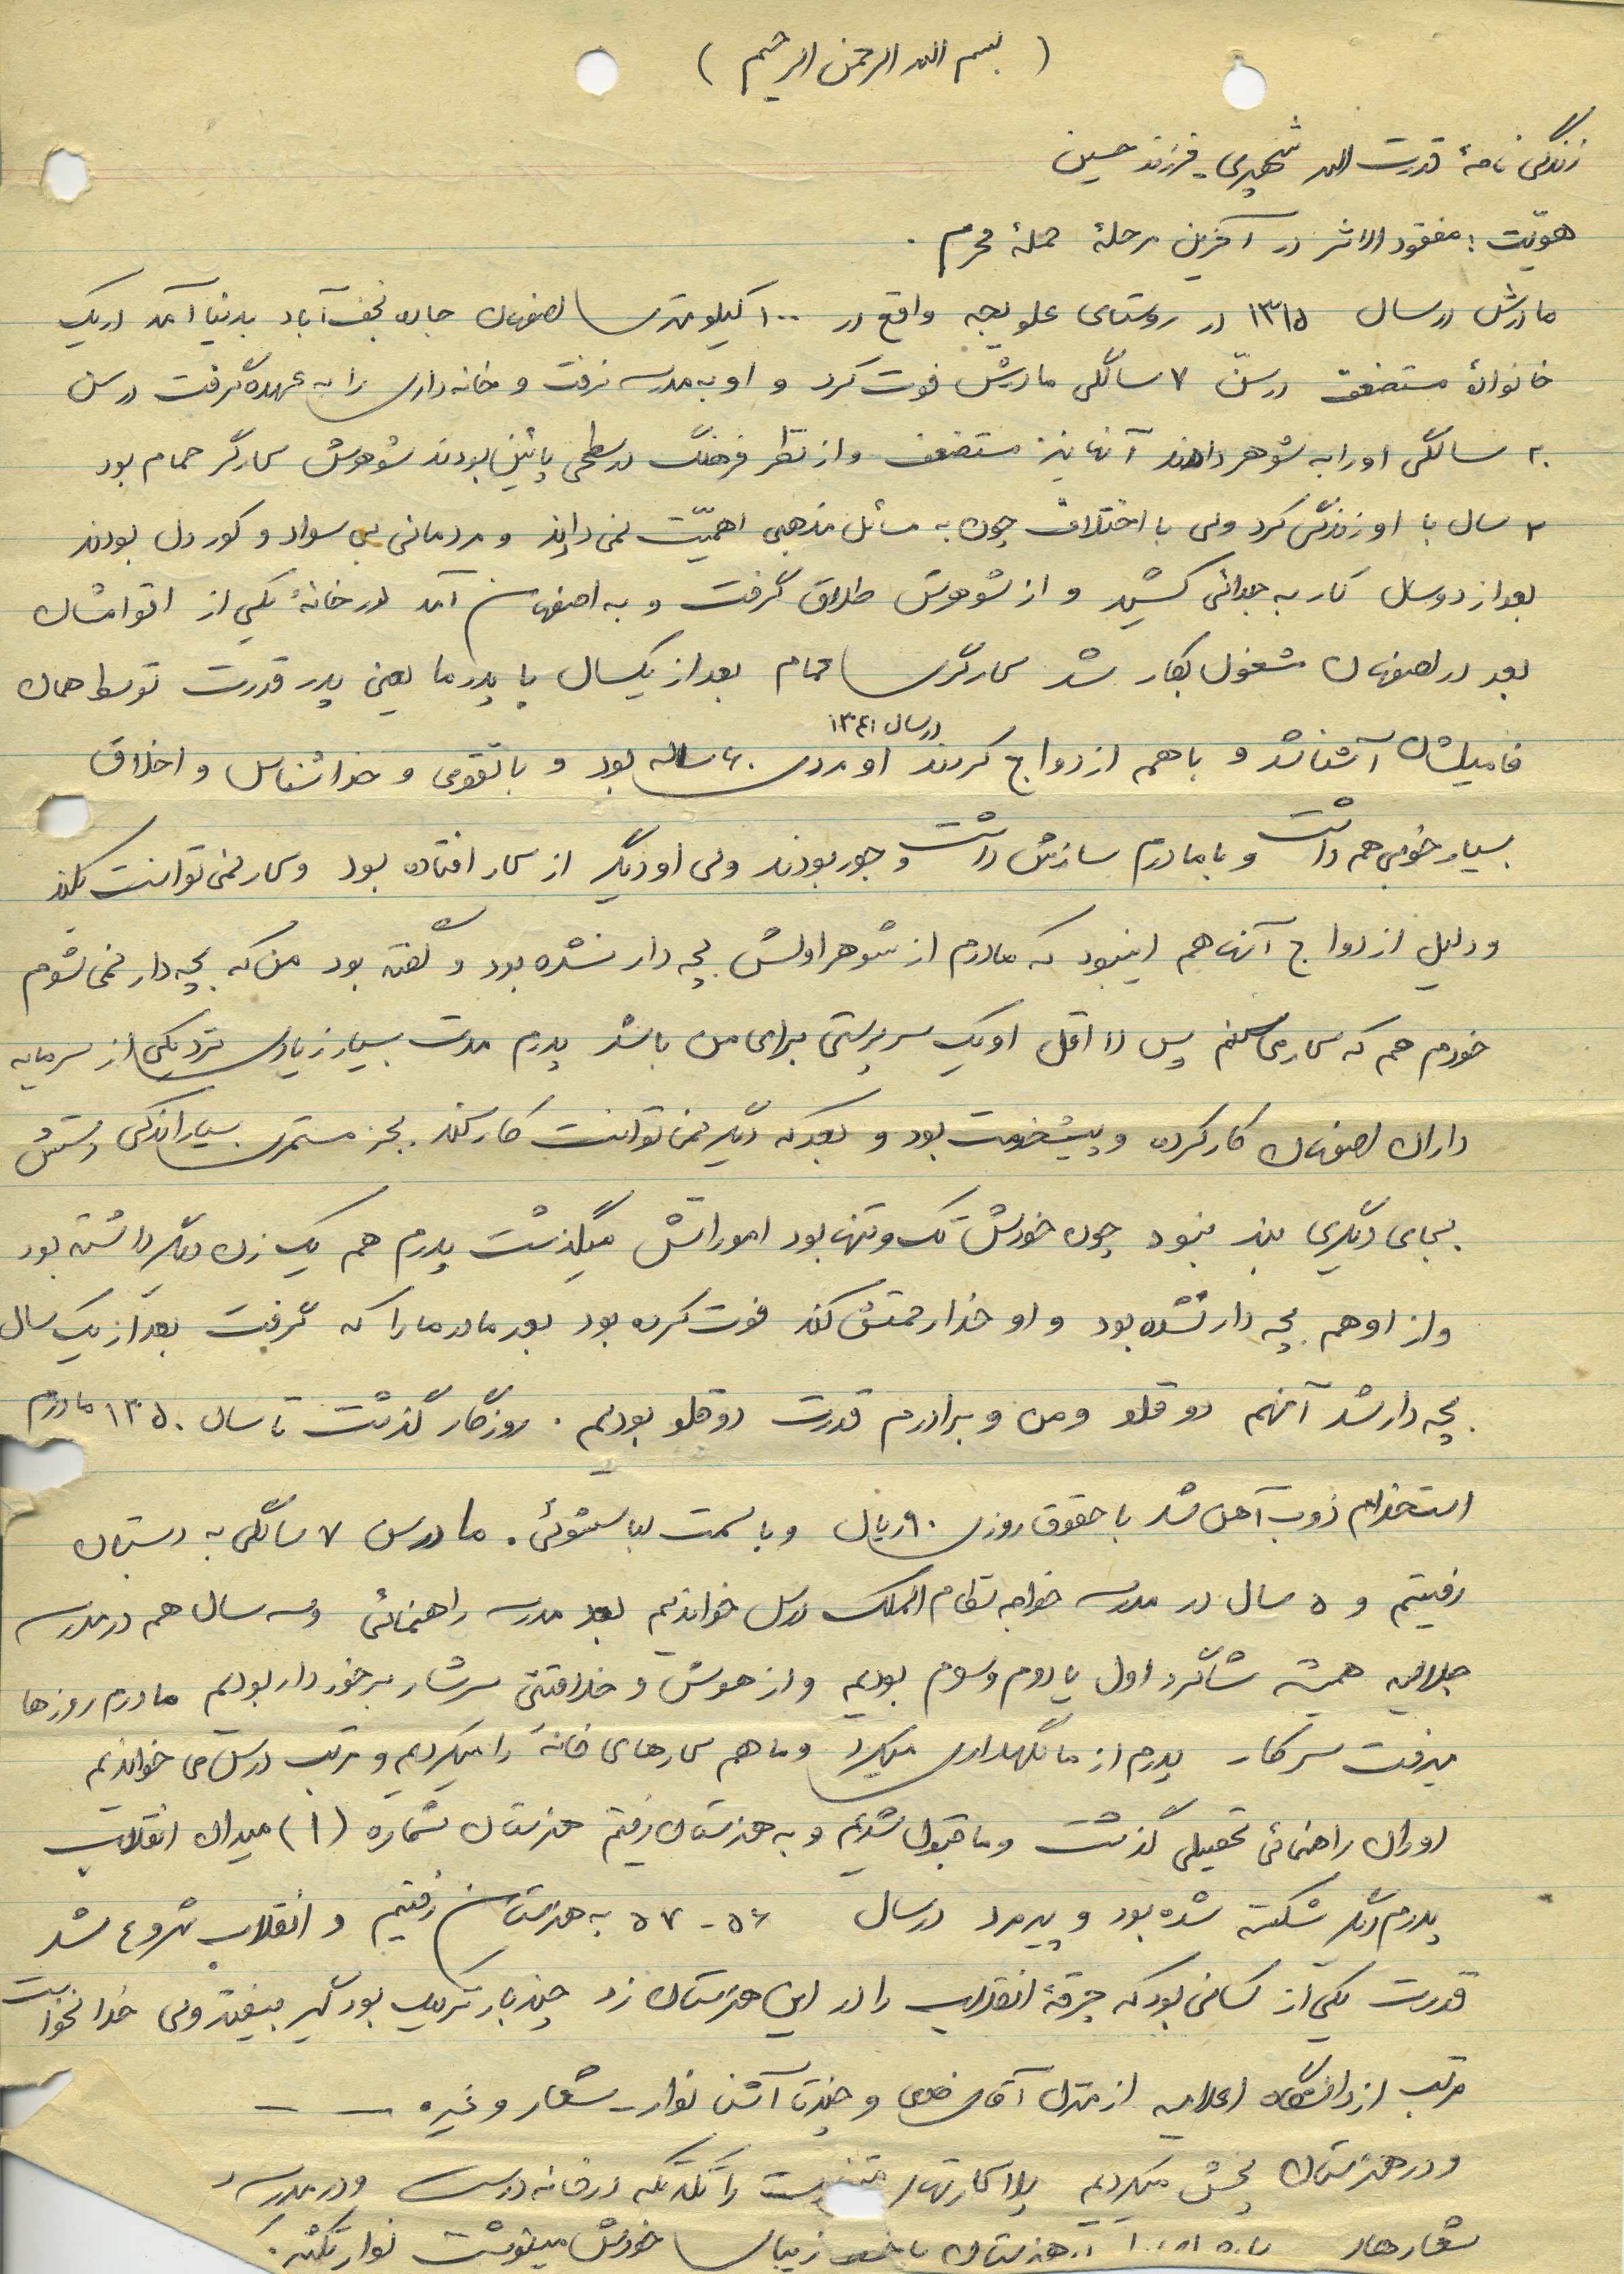 ( بسم الله الرحمن الرحیم )
زندگی نامهٔ قدرت الله شهپری فرزند حسین
هویّت : مفقود الاثر در آخرین مرحلهٔ حملهٔ محرم .
مادرش در سال ۱۳۱۵ در روستای علویجه واقع در ۱۰۰ کیلومتری اصفهان جاده نجف آباد بدنیا آمد در یک
خانوادهٔ مستضعف در سنّ ۷ سالگی مادرش فوت کرد و او به مدرسه نرفت و خانه داری را به عهده گرفت در سن
۲۰ سالگی او را به شوهر دادند آنها نیز مستضعف و از نظر فرهنگ در سطحی پائین بودند شوهرش کارگر حمام بود
۲ سال با او زندگی کرد ولی با اختلاف چون به مسائل مذهبی اهمیّت نمی دادند و مردمانی بی سواد و کور دل بودند
بعد از دو سال کار به جدائی کشید و از شوهرش طلاق گرفت و به اصفهان آمد در خانهٔ یکی از اقوامشان
بعد در اصفهان مشغول بکار شد کارگری حمام بعد از یکسال با پدر ما یعنی پدر قدرت توسط همان
فامیلشان آشنا شد و با هم ازدواج کردند در سال ۱۳۴۱ او مردی ۶۰ ساله بود و با تقوی و خدا شناس و اخلاق
بسیار خوبی هم داشت و با مادرم سازش داشت و جور بودند ولی او دیگر از کار افتاده بود و کار نمی توانست بکند
و دلیل ازدواج آنها هم این بود که مادرم از شوهر اولش بچه دار نشده بود و گفته بود من که بچه دار نمی شوم
خودم هم که کار می کنم پس لا اقل او یک سرپرستی برای من باشد پدرم مدت بسیار زیادی نزد یکی از سرمایه
داران اصفهان کار کرده و پیشخدمت بود و بعد که دیگر نمی توانست کار کند بجز مستمری بسیار اندکی دستش
بجای دیگری بند نبود چون خودش تک و تنها بود اموراتش میگذشت پدرم هم یک زن دیگر داشته بود
و از او هم بچه دار نشده بود و او خدا رحمتش کند فوت کرده بود بعد مادر ما را که گرفت بعد از یک سال
بچه دار شد آنهم دو قلو و من و برادرم قدرت دو قلو بودیم . روزگار گذشت تا سال ۱۳۵۰ مادرم
استخدام ذوب آهن شد با حقوق روزی ۹۰ ریال و با سمت لباسشوئی . ما در سن ۷ سالگی به دبستان
رفتیم و ۵ سال در مدرسه خواجه نظام الملک درس خواندیم بعد مدرسه راهنمائی و سه سال هم در مدرسه
جلالیه همیشه شاگرد اول یا دوم و سوم بودیم و از هوش و خلاقیّتی سرشار برخوردار بودیم مادرم روزها
میرفت سر کار پدرم از ما نگهداری میکرد و ما هم کارهای خانه را میکردیم و مرتب درس می خواندیم
دوران راهنمائی تحصیلی گذشت و ما قبول شدیم و به هنرستان رفتیم هنرستان شماره (۱) میدان انقلاب
پدرم دیگر شکسته شده بود و پیرمرد در سال ۵۶ - ۵۷ به هنرستان رفتیم و انقلاب شروع شد
قدرت یکی از کسانی بود که جرقهٔ انقلاب را در این هنرستان زد چند بار نزدیک بود گیر بیفتد ولی خدا نخواست
مرتب از دانشگاه اعلامیه از منزل آقای خادمی و چند تا آشنا نوار - شعار و غیره — —
و در هنرستان پخش میکردیم پلاکارتهای را تکه تکه در خانه درست و در مدرسه
شعارها هنرستان با خط زیبای خودش مینوشت نوار